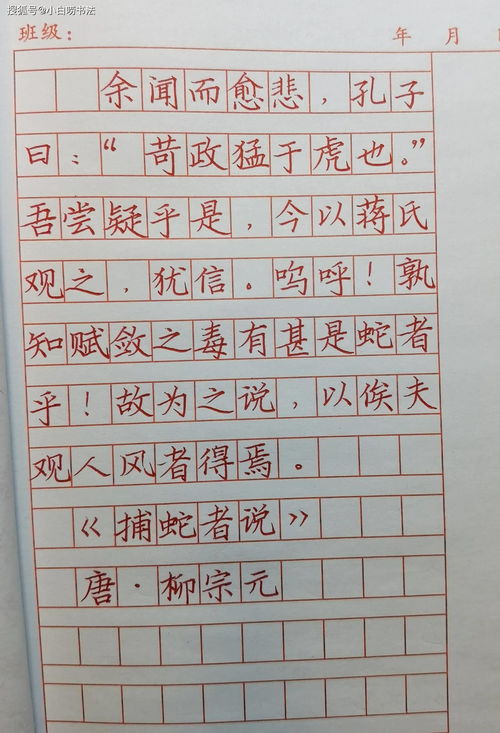 搜狐号@小白唠书法
班级：
年 月 日
余闻而愈悲，孔子
曰：“苛政猛于虎也。”
吾尝疑乎是，今以蒋氏
观之，犹信。呜呼！孰
知赋敛之毒有甚是蛇者
乎！故为之说，以俟夫
观人风者得焉。
《捕蛇者说》
唐·柳宗元